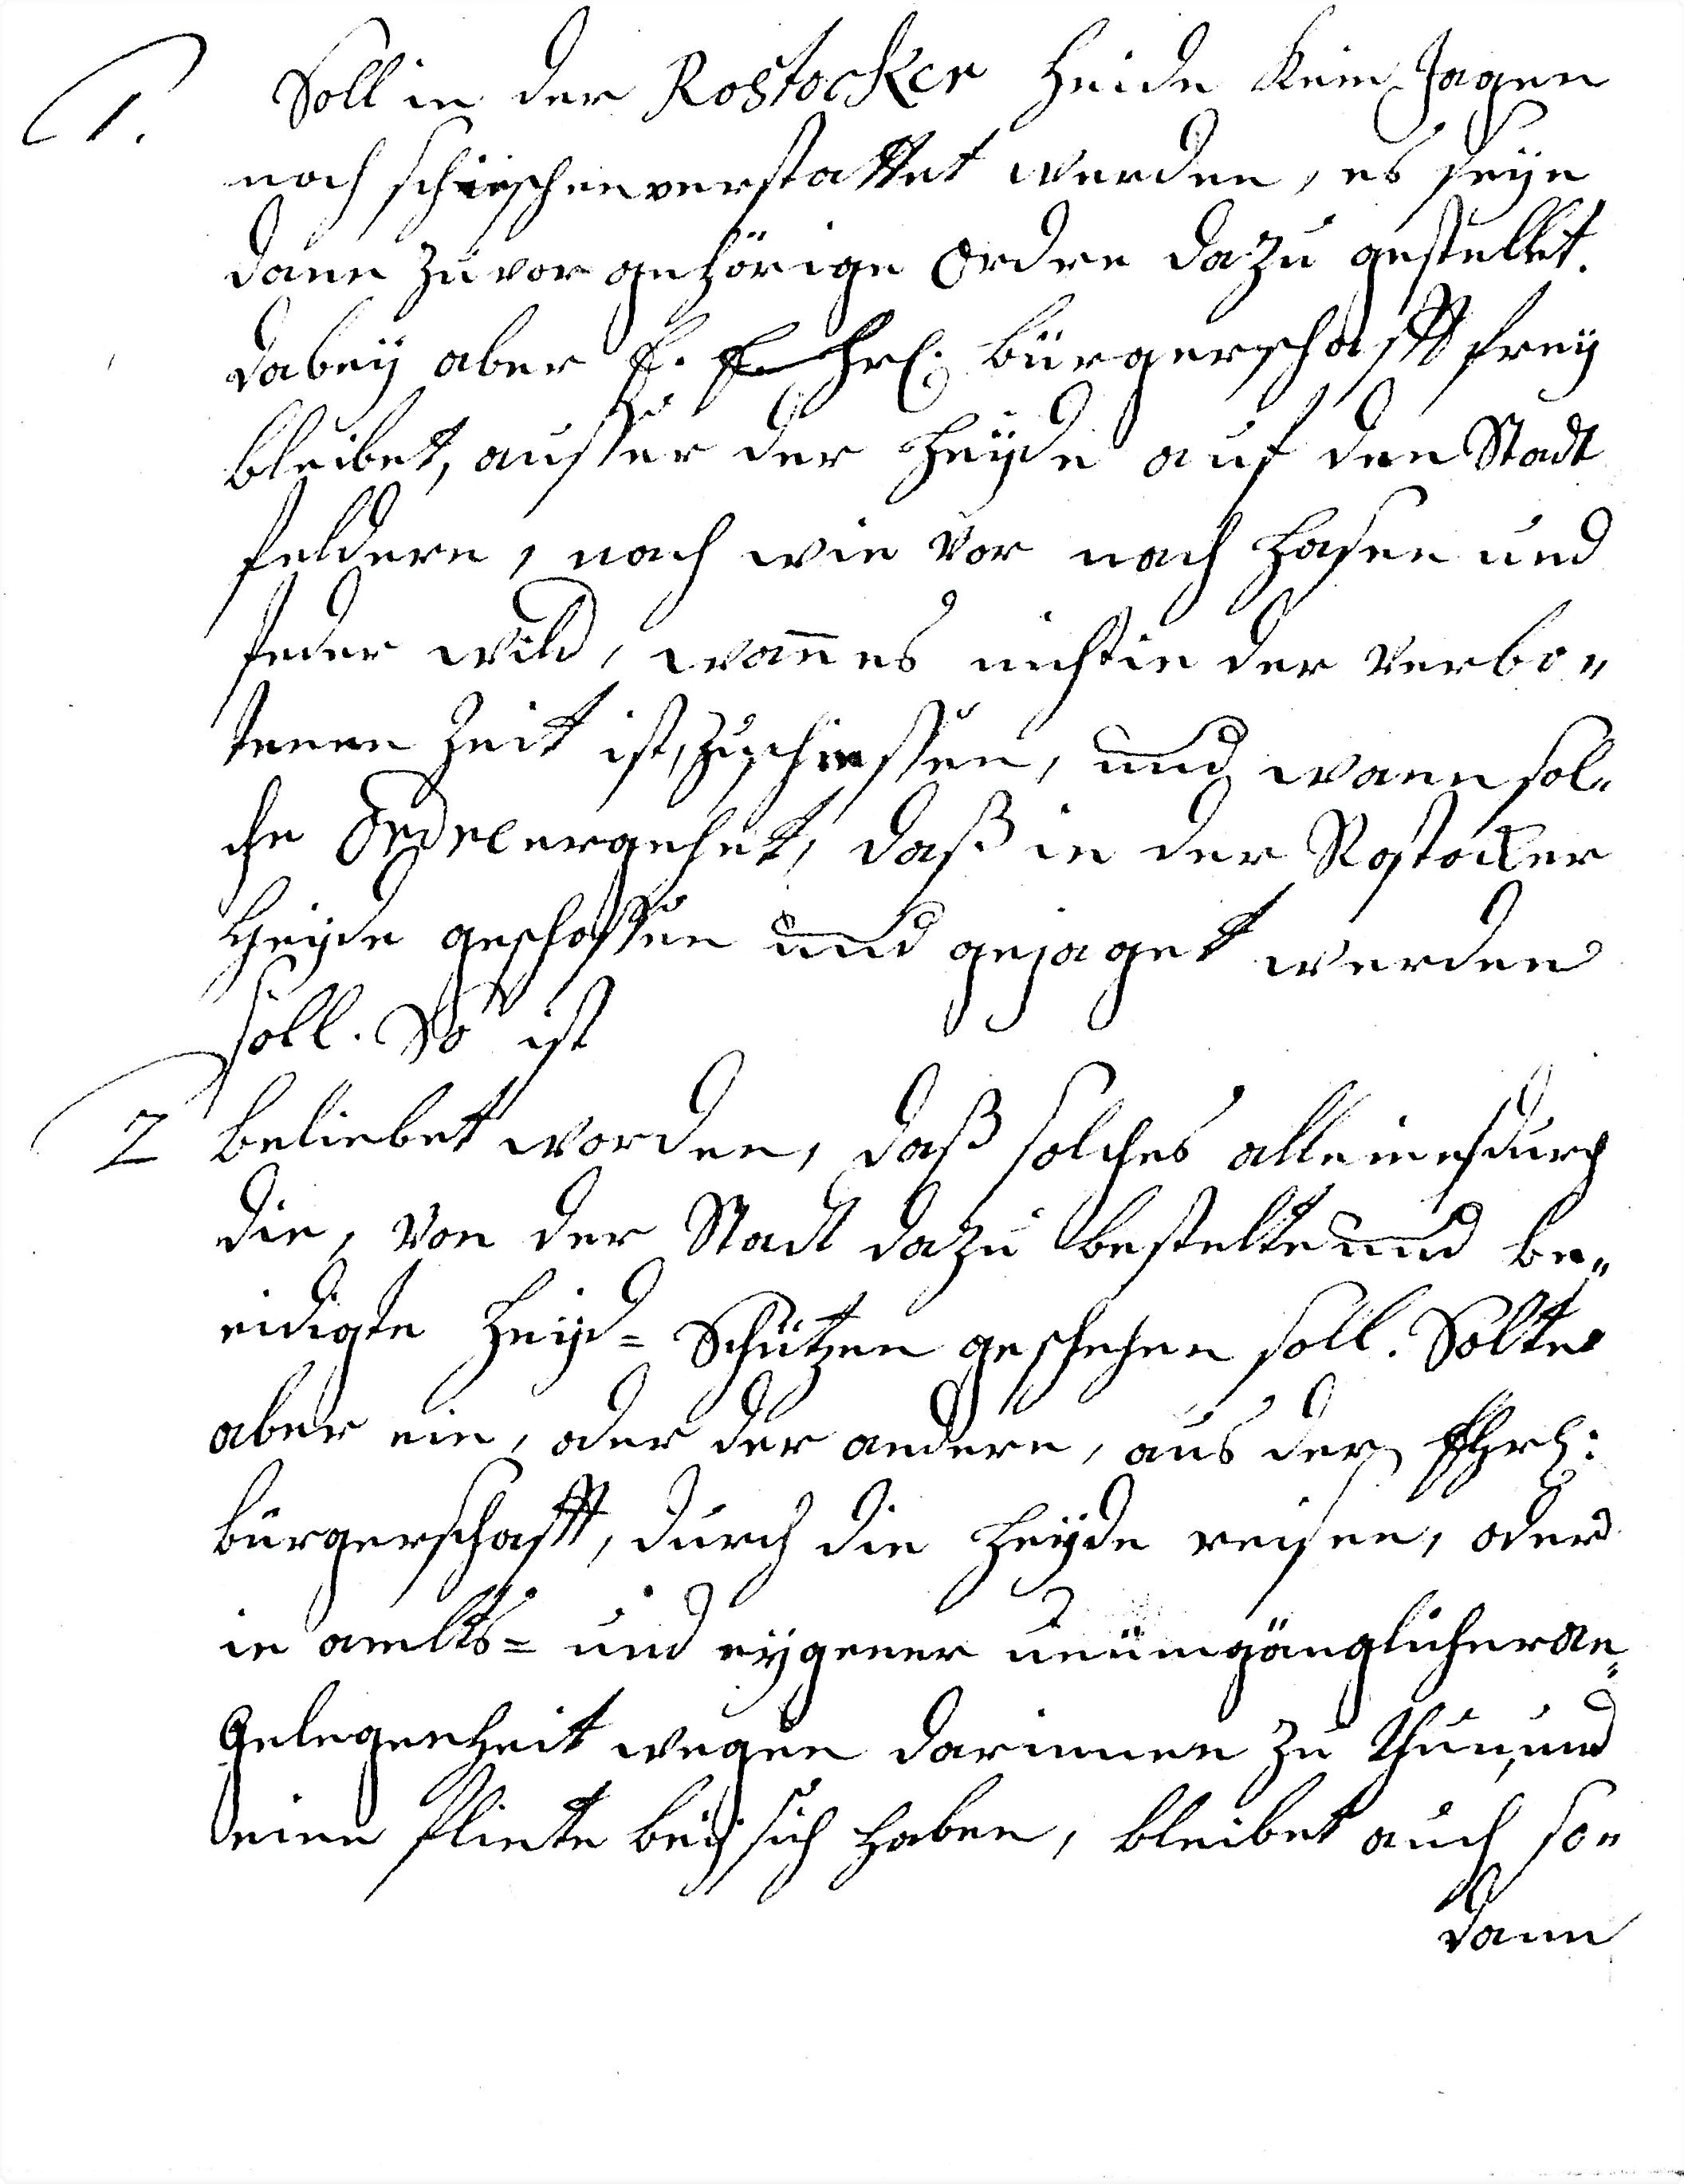 1. Soll in der Rostocker Heide kein Jagen
noch schieschen verstattet werden, es seÿe
dann zuvor gehörige Ordre dazu gestellet.
dabeÿ aber E. Ehrl. bürgerschafft freÿ
bleibet, ausser der Heÿde auf den Stadt
feldern, nach wie vor nach Hasen und
feder wild, wann es nicht in der verbo„
tenen Zeit ist, zu schiessen, und wann sol„
che Ordre ergehet, daß in der Rostocker
Heÿde geschossen und gejaget werden
soll. So ist
2 beliebet worden, daß solches alleine durch
die, von der Stadt dazu bestelte und be„
eidigte Heÿd= Schützen geschehen soll. Solte
aber ein, oder der andere, aus der Ehrl:
bürgerschafft, durch die Heÿde reisen, oder
in ambts= und eÿgener unümgänglicher An„
Gelegenheit wegen darinnen zu thun, und
eine flinte beÿ sich haben, bleibet auch so„
dann